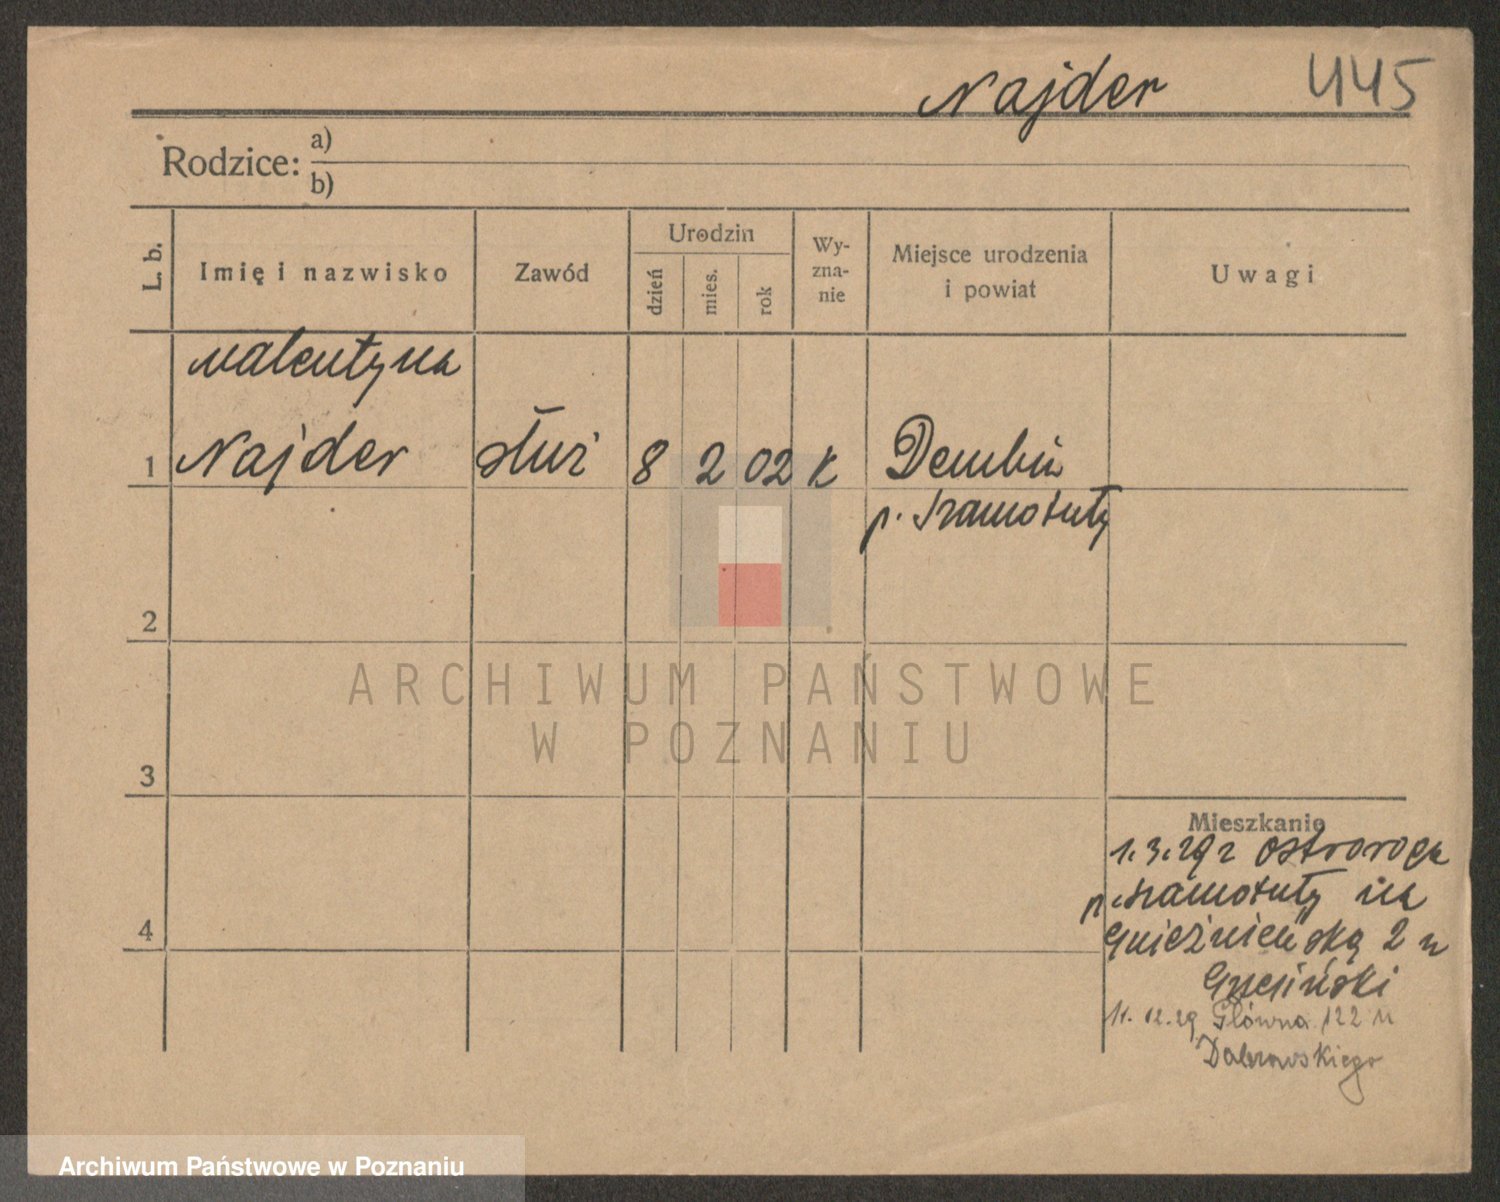 Najder 445
Rodzice: a)
b)
L. b. Imię i nazwisko Zawód Urodzin dzień mies. rok Wy-zna-nie Miejsce urodzenia i powiat Uwagi
Walentyna
1 Najder służ 8 2 02 K Dembin
p. Szamotuły
2
ARCHIWUM PAŃSTWOWE
W POZNANIU
3
Mieszkanie
1.3.29 z Ostroroga
p. Szamotuły na
4 Gnieźnieńską 2 u
11.12.29 Główna 122 u
Dabrowskiego
Archiwum Państwowe w Poznaniu